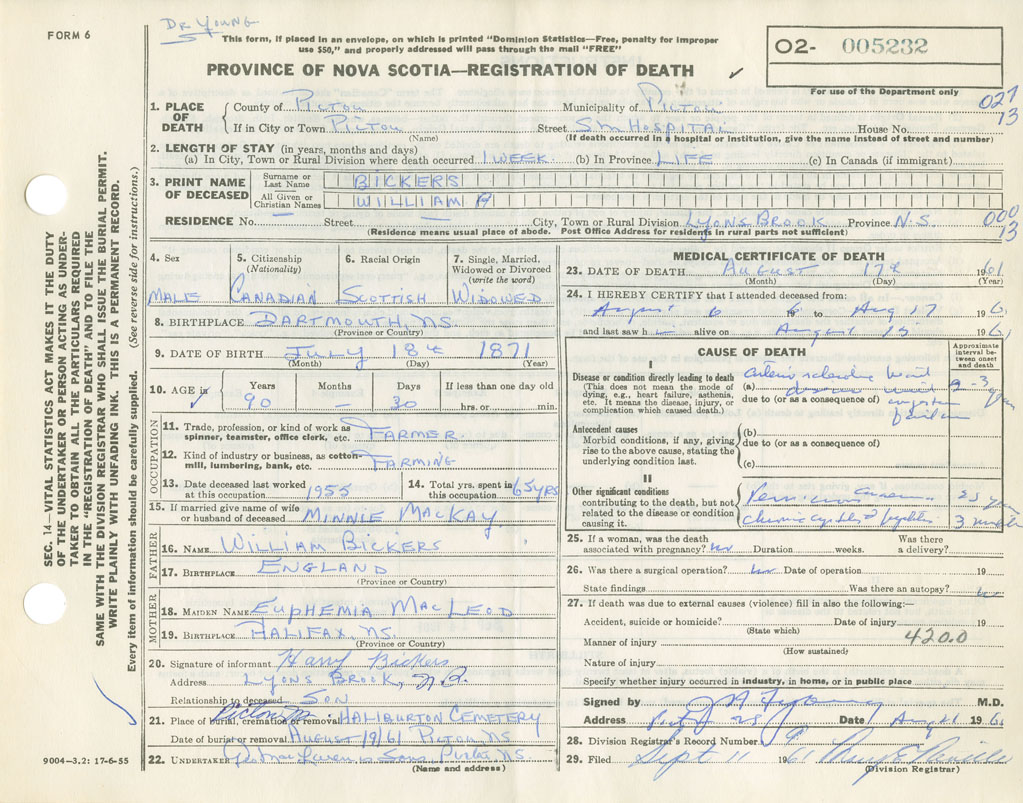 FORM 6
DR YOUNG
This form, if placed in an envelope, on which is printed "Dominion Statistics—Free, penalty for improper
use $50," and properly addressed will pass through the mail "FREE"
PROVINCE OF NOVA SCOTIA—REGISTRATION OF DEATH ✓
02- 005232
For use of the Department only
027
13
1. PLACE OF DEATH
County of PICTOU Municipality of PICTOU
If in City or Town PICTOU Street SM HOSPITAL House No.
(Name) (If death occurred in a hospital or institution, give the name instead of street and number)
2. LENGTH OF STAY (in years, months and days)
(a) In City, Town or Rural Division where death occurred 1 WEEK (b) In Province LIFE (c) In Canada (if immigrant)
3. PRINT NAME OF DECEASED
Surname or Last Name BICKERS
All Given or Christian Names WILLIAM A
RESIDENCE No. — Street — City, Town or Rural Division LYONS BROOK Province N.S. 000
13
(Residence means usual place of abode. Post Office Address for residents in rural parts not sufficient)
4. Sex MALE
5. Citizenship (Nationality) CANADIAN
6. Racial Origin SCOTTISH
7. Single, Married, Widowed or Divorced (write the word) WIDOWED
8. BIRTHPLACE DARTMOUTH NS.
(Province or Country)
9. DATE OF BIRTH JULY 18th 1871
(Month) (Day) (Year)
10. AGE in ✓ Years 90 Months — Days 30 If less than one day old hrs. or min.
OCCUPATION
11. Trade, profession, or kind of work as spinner, teamster, office clerk, etc. FARMER
12. Kind of industry or business, as cotton-mill, lumbering, bank, etc. FARMING
13. Date deceased last worked at this occupation 1955 14. Total yrs. spent in this occupation 65 YRS
15. If married give name of wife or husband of deceased MINNIE MACKAY
FATHER
16. NAME WILLIAM BICKERS
17. BIRTHPLACE ENGLAND
(Province or Country)
MOTHER
18. MAIDEN NAME EUPHEMIA MACLEOD
19. BIRTHPLACE HALIFAX, NS.
(Province or Country)
20. Signature of informant Harry Bickers
Address LYONS BROOK, N.S.
Relationship to deceased SON
21. Place of burial, cremation or removal HALIBURTON CEMETERY
Date of burial or removal AUGUST 19/61 PICTOU NS
22. UNDERTAKER
(Name and address)
MEDICAL CERTIFICATE OF DEATH
23. DATE OF DEATH AUGUST 17th 1961
(Month) (Day) (Year)
24. I HEREBY CERTIFY that I attended deceased from:
August 6 19 to Aug 17 1961
and last saw h alive on August 15 1961
CAUSE OF DEATH
Approximate interval between onset and death
I
Disease or condition directly leading to death
(This does not mean the mode of
dying, e.g., heart failure, asthenia,
etc. It means the disease, injury, or
complication which caused death.)
(a)
due to (or as a consequence of)
2-3
Antecedent causes
Morbid conditions, if any, giving
rise to the above cause, stating the
underlying condition last.
(b)
due to (or as a consequence of)
(c)
II
Other significant conditions
contributing to the death, but not
related to the disease or condition
causing it.
chronic
3
25. If a woman, was the death associated with pregnancy? no Duration weeks. Was there a delivery?
26. Was there a surgical operation? no Date of operation 19
State findings Was there an autopsy? no
27. If death was due to external causes (violence) fill in also the following:—
Accident, suicide or homicide? Date of injury 19
(State which)
Manner of injury 420.0
(How sustained)
Nature of injury
Specify whether injury occurred in industry, in home, or in public place
Signed by M.D.
Address Date 1961
28. Division Registrar's Record Number 9
29. Filed Sept 11 1961
(Division Registrar)
9004—3.2: 17-6-55
SEC. 14—VITAL STATISTICS ACT MAKES IT THE DUTY
OF THE UNDERTAKER OR PERSON ACTING AS UNDER-
TAKER TO OBTAIN ALL THE PARTICULARS REQUIRED
IN THE "REGISTRATION OF DEATH" AND TO FILE THE
SAME WITH THE DIVISION REGISTRAR WHO SHALL ISSUE THE BURIAL PERMIT.
WRITE PLAINLY WITH UNFADING INK. THIS IS A PERMANENT RECORD.
Every item of information should be carefully supplied. (See reverse side for instructions.)